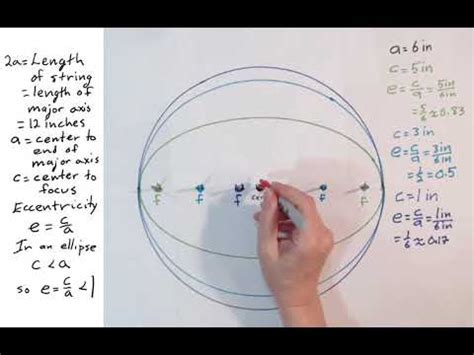 2a = Length
of string
= length of
major axis
= 12 inches
a = center to
end of
major axis
c = center to
focus
Eccentricity
e = c/a
In an ellipse
c < a
so e = c/a < 1
f f f f f
a = 6in
c = 5in
e = c/a = 5in/6in
= 5/6 ≈ 0.83
c = 3in
e = c/a = 3in/6in
= 1/2 = 0.5
c = 1in
e = c/a = 1in/6in
= 1/6 ≈ 0.17